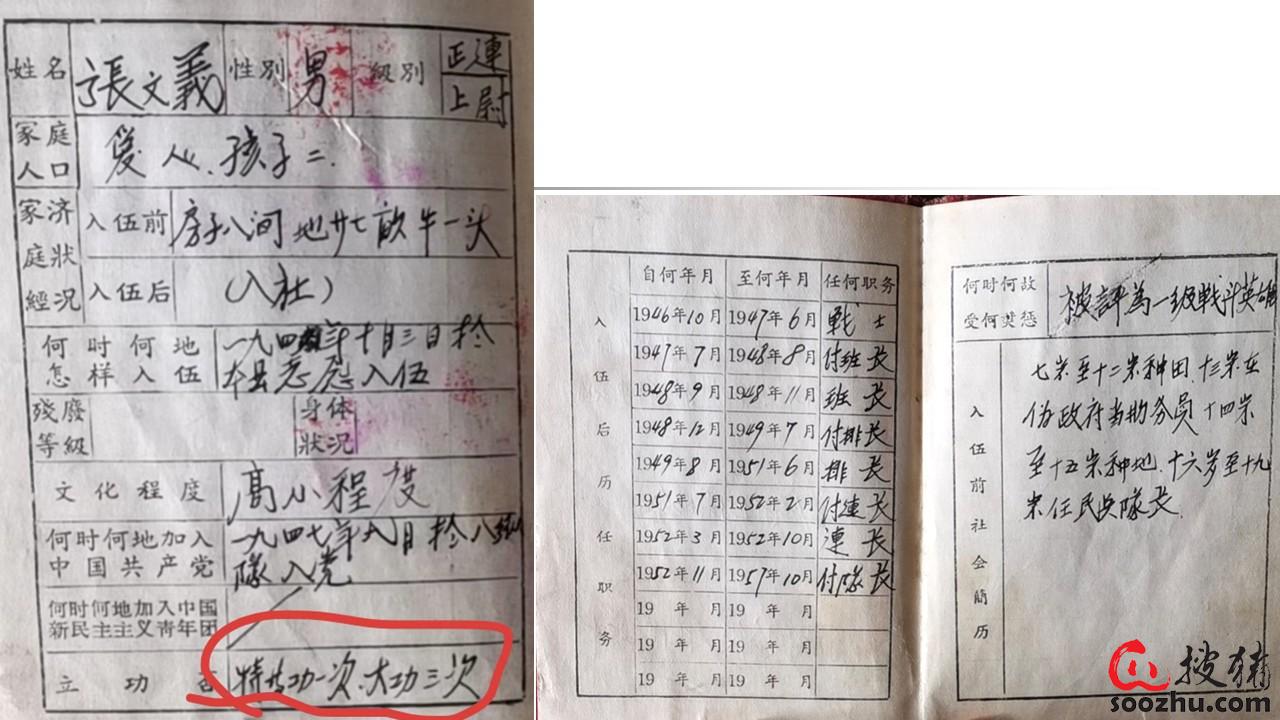 姓名 張文義 性別 男 級別 正連
上尉
家庭人口 爱人.孩子二.
家庭經济狀况 入伍前 房子八间 地廿七畝 牛一头
入伍后 (入社)
何时何地怎样入伍 年十月三日於
本县志愿入伍
殘廢等級 身体狀况
文化程度 高小程度
何时何地加入中国共产党 一九四七年九月於八縱
隊入党
何时何地加入中国新民主主义青年团
立功否 特大功一次.大功三次
入伍后历任职务
自何年月 至何年月 任何职务
1946年10月 1947年6月 戰士
1947年7月 1948年8月 付班長
1948年9月 1948年11月 班長
1948年12月 1949年7月 付排長
1949年8月 1951年6月 排長
1951年7月 1952年2月 付連長
1952年3月 1952年10月 連長
1952年11月 1957年10月 付隊長
19 年 月 19 年 月
19 年 月 19 年 月
19 年 月 19 年 月
何时何故受何奖惩 被評為一級戰斗英雄
入伍前社会简历
七岁至十二岁种田.十三岁在
伪政府当勤务员 十四岁
至十五岁种地.十六岁至十九
岁任民兵隊長.
搜猪
soozhu.com